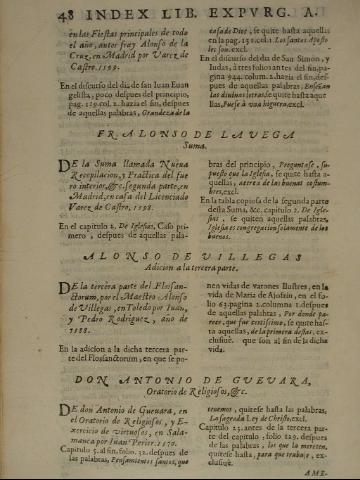 48 INDEX LIB. EXPVRG. A.
en las Fiestas principales de todo
el año, autor fray Alonso de la
Cruz, en Madrid por Varez de
Castro. 1599.
En el discurso del dia de san Iuan Euan
gelista, poco despues del principio,
pag. 129. col. 2. hazia el fin, despues
de aquellas palabras, Grandeza de la
casa de Dios, se quite hasta aquellas
en la pag. 131. col. 1. Los santos Aposto
les son. excl.
En el discurso del dia de San Simon, y
Iudas, a tres folios antes del fin. pa-
gina 944. colum. 2. hazia el fin, des-
pues de aquellas palabras. Enseñan
las diuinas letras. se quite hasta aque
llas, Fuesse à vna higuera. excl.
FR. ALONSO DE LA VEGA
Suma.
DE la Suma llamada Nueua
Recopilacion, y Practica del fue
ro interior, &c. segunda parte, en
Madrid, en casa del Licenciado
Varez de Castro, 1598.
En el capitulo 2. De Iglesias, Caso pri-
mero, despues de aquellas pala-
bras del principio, Preguntase, su-
puesto que la Iglesia, se quiten hasta a-
quellas, acerca de las buenas costum-
bres. excl.
En la tabla copiosa de la segunda parte
desta Suma, &c. capitulo 2. De Igle-
sias, se quiten aquellas palabras,
Iglesia es congregacion solamente de los
buenos.
ALONSO DE VILLEGAS
Adicion a la tercera parte.
DE la tercera parte del Flossan-
ctorum, por el Maestro Alonso
de Villegas, en Toledo por Iuan,
y Pedro Rodriguez, año de
1588.
En la adicion a la dicha tercera par-
te del Flossanctorum, en que se po-
nen vidas de varones Illustres, en la
vida de Maria de Ajofrin, en el fo-
lio 63. pagina 2. columna 1. despues
de aquellas palabras, Por donde pa-
rece, que fue certissimo, se quite has-
ta aquellas, de la primera destas, ex-
clusiuè. que son al fin de la dicha
vida.
DON ANTONIO DE GVEVARA,
Oratorio de Religiosos, &c.
DE don Antonio de Gueuara, en
el Oratorio de Religiosos, y E-
xercicio de virtuosos, en Sala-
manca por Iuan Perier. 1570.
Capitulo 5. al fin. folio. 12. despues de
las palabras, Pensamientos santos, que
tenemos, quitese hasta las palabras,
La sagrada Ley de Christo. excl.
Capitulo 25. antes de la tercera par-
te del capitulo, folio 129. despues
de las palabras, los que lo merecen,
quitese hasta, para que trabaje, ex-
clusiuè.
AME-